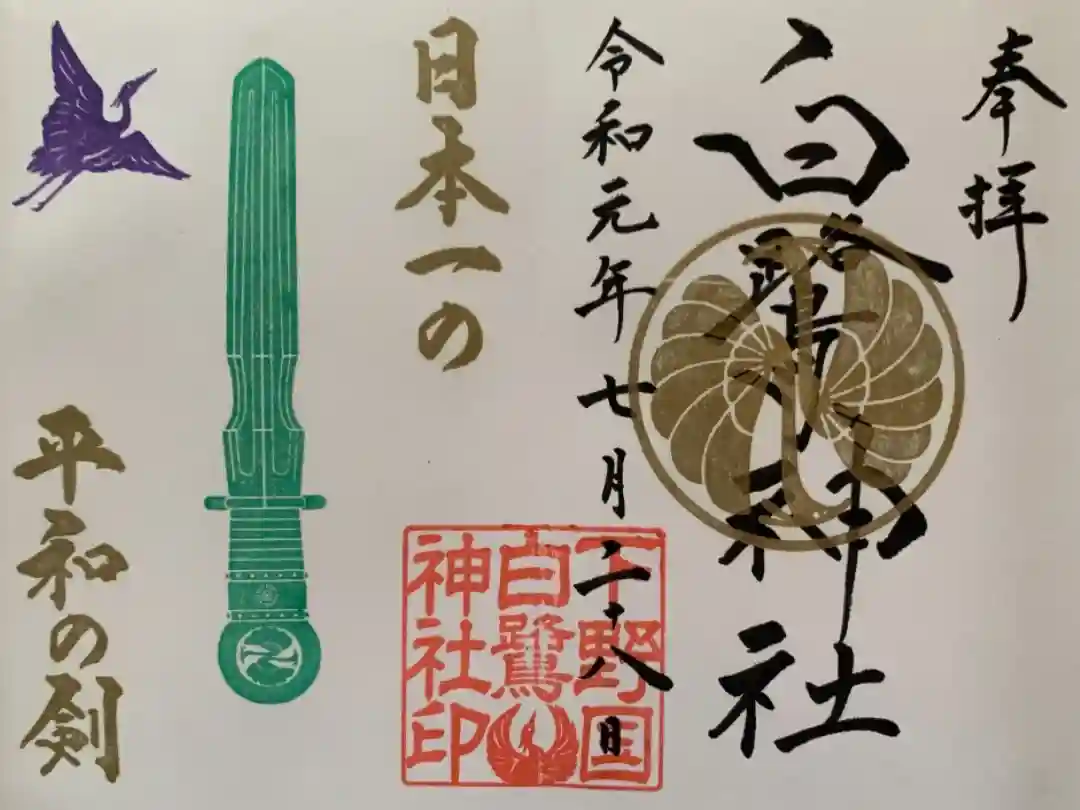 奉拝
白鷺神社
令和元年七月二十八日
下野国
白鷺
神社印
日本一の
平和の剣